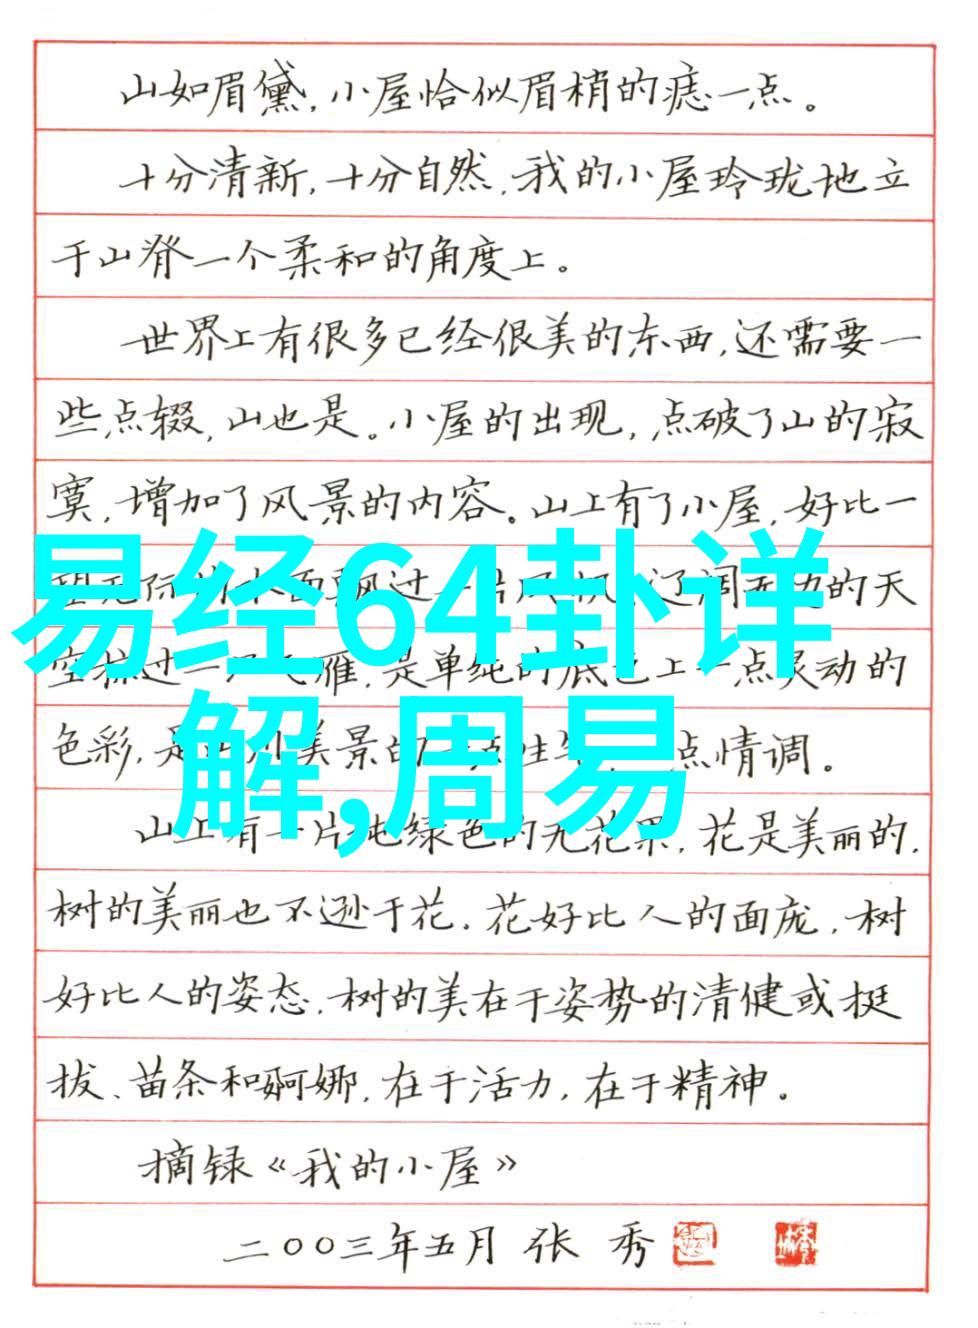 山如眉黛，小屋恰似眉梢的痣一点。
十分清新，十分自然，我的小屋玲珑地立
于山脊一个柔和的角度上。
世界上有很多已经很美的东西，还需要一
些点缀，山也是。小屋的出现，点破了山的寂
寞，增加了风景的内容。山上有了小屋，好比一
飘过一片风帆，辽阔无边的天
空掠过一只飞雁，是单纯的底色上一点灵动的
色彩，是山川美景的一点生气，一点情调。
易经64卦详
解,周易
山上有一片纯绿色的无花果，花是美丽的，
树的美丽也不逊于花。花好比人的面庞，树
好比人的姿态。树的美在于姿势的清健或挺
拔、苗条和婀娜，在于活力，在于精神。
摘录《我的小屋》
二〇〇三年五月 张 秀